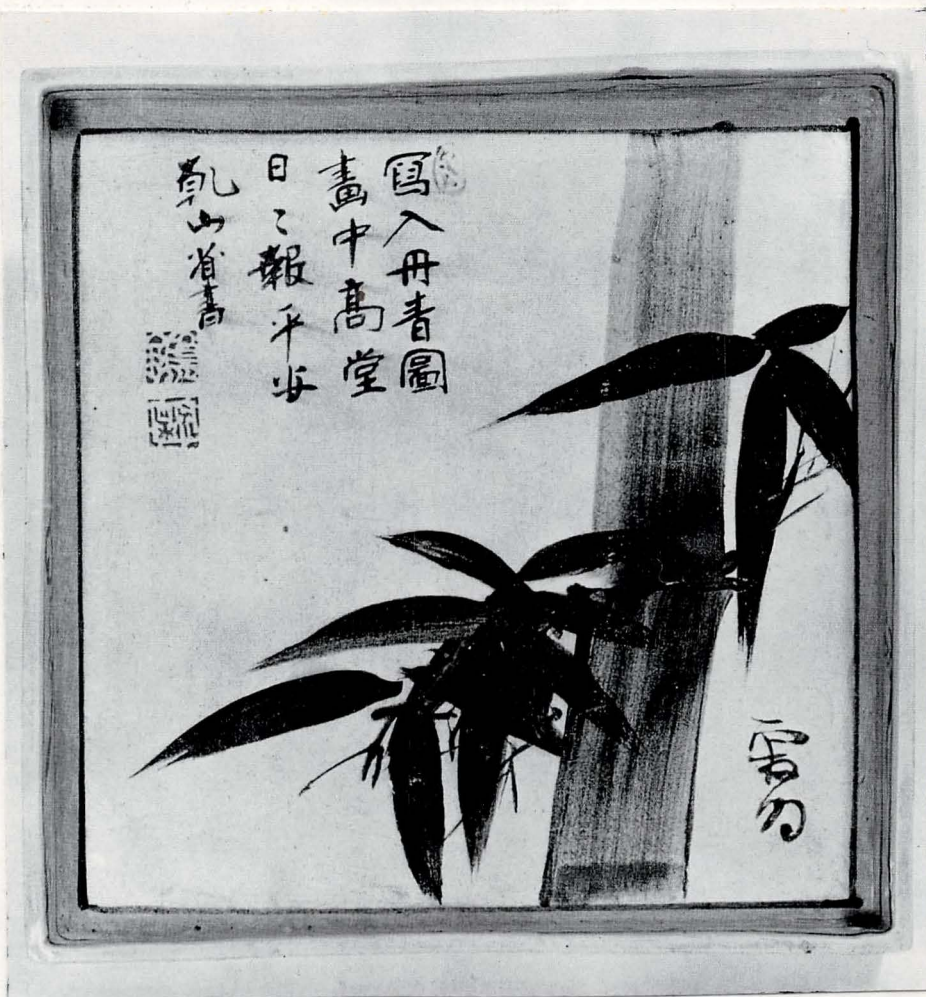 冩入丹青圖
畫中髙堂
日〻報平安
乾山省書